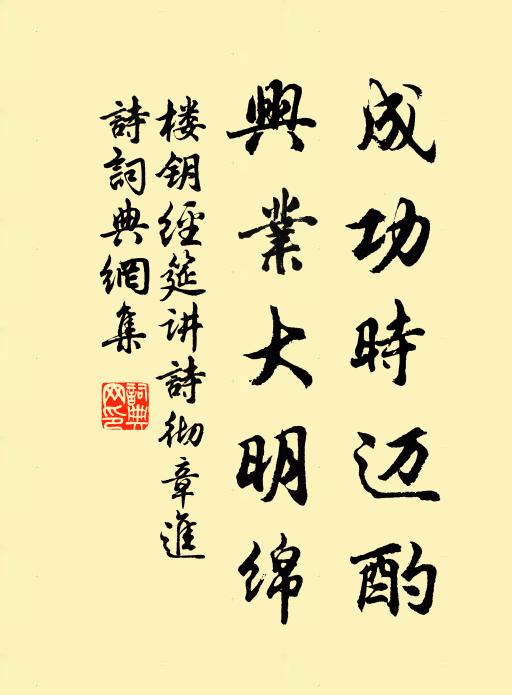 成功時迈酌
興業大明绵
楼钥經筵讲詩彻章進
詩詞典網集
詞典网印